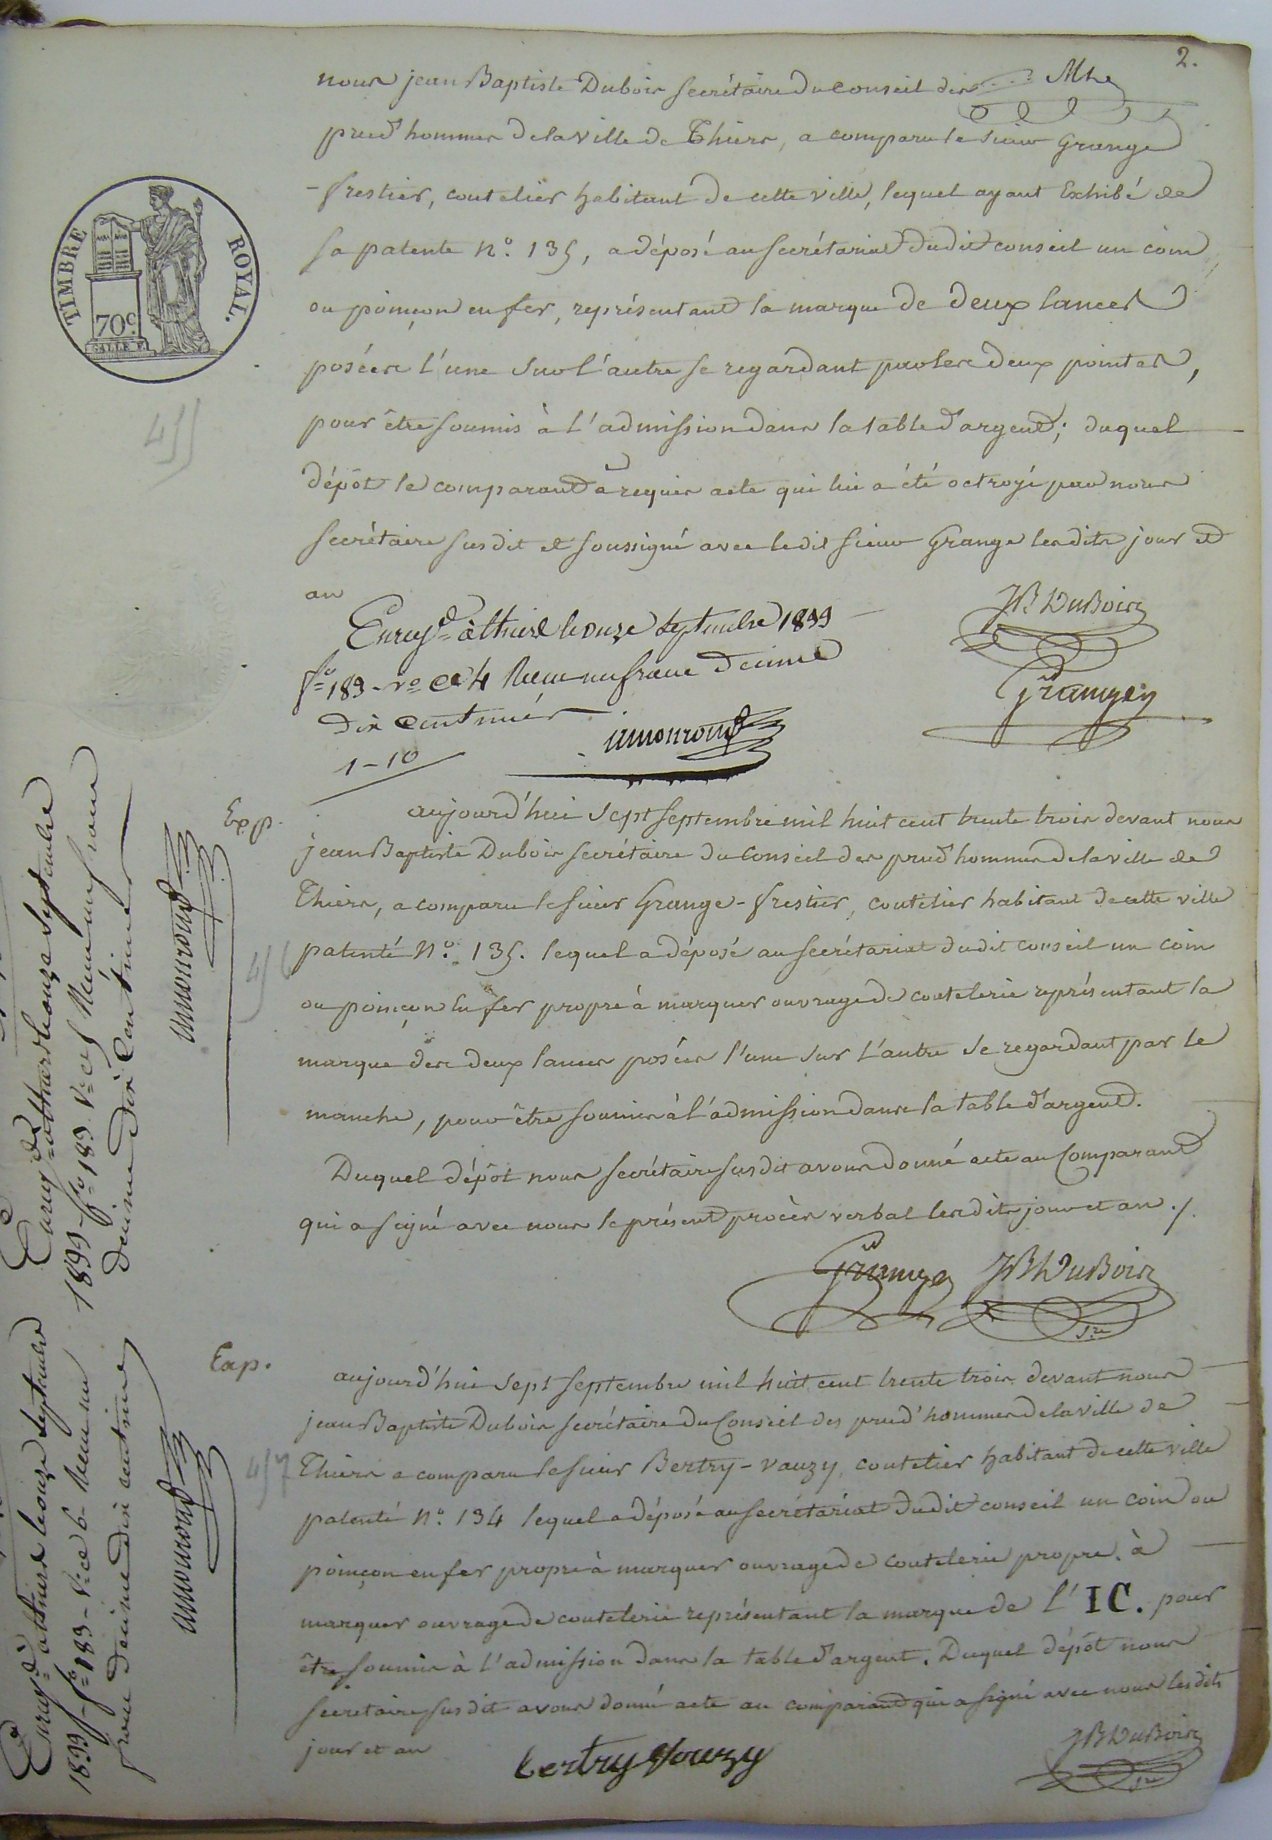 2.
nous jean Baptiste Dubois secrétaire du conseil des
prud'hommes de la ville de Thiers, a comparu le sieur Grange
-frestier, coutelier habitant de cette ville, lequel ayant Exhibé de
sa patente N.º 135, a déposé au secrétariat dudit conseil un coin
ou poinçon en fer, représentant la marque de deux lances
posées l'une sur l'autre se regardant par les deux pointes,
pour être soumis à l'admission dans la table d'argent; duquel
dépôt le comparant a requis acte qui lui a été octroyé par nous
secrétaire susdit et soussigné avec le dit sieur Grange les dits jour et
an
TIMBRE ROYAL.
70c.
455
JB DuBois
Grange
Enregé. à thiers le onze septembre 1833
fº 183 rº Ce 4 Recu un franc décime
dix centimes
1-10
Exp.
456
aujourd'hui sept septembre mil huit cent trente trois devant nous
jean Baptiste Dubois secrétaire du Conseil des prud'hommes de la ville de
Thiers, a comparu le sieur Grange-frestier, coutelier habitant de cette ville
patenté N.º 135. lequel a déposé au secrétariat dudit conseil un coin
ou poinçon en fer propre à marquer ouvrage de coutelerie représentant la
marque des deux lances posées l'une sur l'autre se regardant par le
manche, pour être soumis à l'admission dans la table d'argent.
Duquel dépôt nous secrétaire susdit avons donné acte au Comparant
qui a signé avec nous le présent procès verbal les dits jour et an ./.
Grange JB DuBois
Sre
Enregé. à thiers le onze septembre
1833 fº 183 Vº ce 5 Recu un franc
décime dix centimes
Exp.
457
aujourd'hui sept septembre mil huit cent trente trois devant nous
jean Baptiste Dubois secrétaire du Conseil des prud'hommes de la ville de
Thiers a comparu le sieur Bertry-vauzy, coutelier habitant de cette ville
patenté N.º 134 lequel a déposé au secrétariat dudit conseil un coin ou
poinçon en fer propre à marquer ouvrage de coutelerie propre à
marquer ouvrage de coutelerie représentant la marque de l'IC. pour
être soumis à l'admission dans la table d'argent. Duquel dépôt nous
secretaire susdit avons donné acte au comparant qui a signé avec nous les dits
jour et an
bertry vouzy
JB DuBois
Sre
Enregé. à thiers le onze septembre
1833 fº 183 Vº ce 6 Recu un
franc décime dix centimes